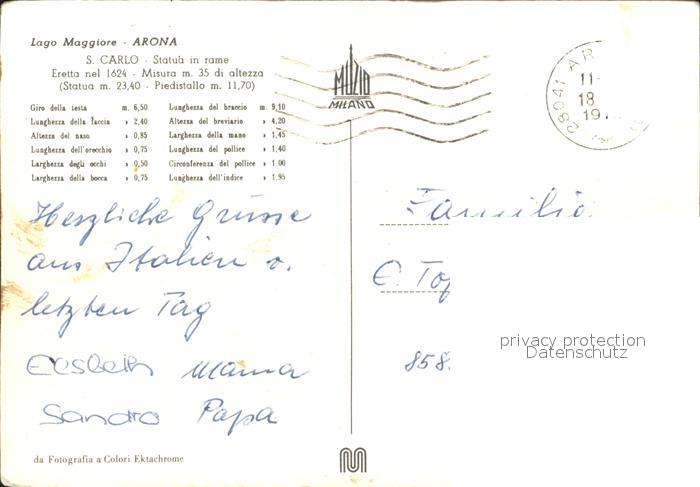 Lago Maggiore - ARONA
S. CARLO - Statuà in rame
Eretta nel 1624 - Misura m. 35 di altezza
(Statua m. 23,40 - Piedistallo m. 11,70)
Giro della testa m. 6,50
Lunghezza della faccia » 2,40
Altezza del naso » 0,85
Lunghezza dell'orecchio » 0,75
Larghezza degli occhi » 0,50
Larghezza della bocca » 0,75
Lunghezza del braccio m. 9,10
Altezza del breviario » 4,20
Larghezza della mano » 1,45
Lunghezza del pollice » 1,40
Circonferenza del pollice » 1.00
Lunghezza dell'indice » 1,95
MUZIO
MILANO
28041 AR
11-
18
19
Herzliche Grüsse
aus Italien v.
letzten Tag
Elsbeth Mama
Sandro Papa
Familie
E. Top
858.
privacy protection
Datenschutz
da Fotografia a Colori Ektachrome